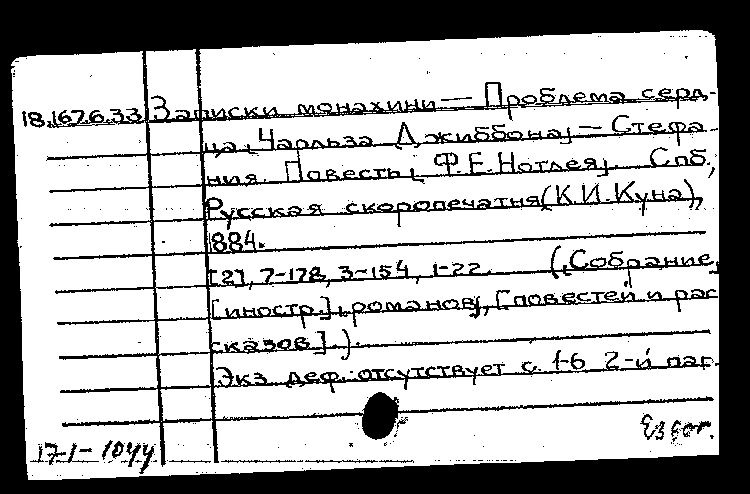 18.167.6.33 Записки монахини — Проблема серд-
ца, Чарльза Джиббона, — Стефа
ния. Повесть, Ф.Е.Нотлея,. Спб.,
Русская скоропечатня(К.И.Куна),
1884.
[2], 7-178, 3-154, 1-22. (,Собрание,
[иностр.],романов,, [повестей и рас
сказов].).
Экз. деф.:отсутствует с. 1-6 2-й паг.
17-1-1044